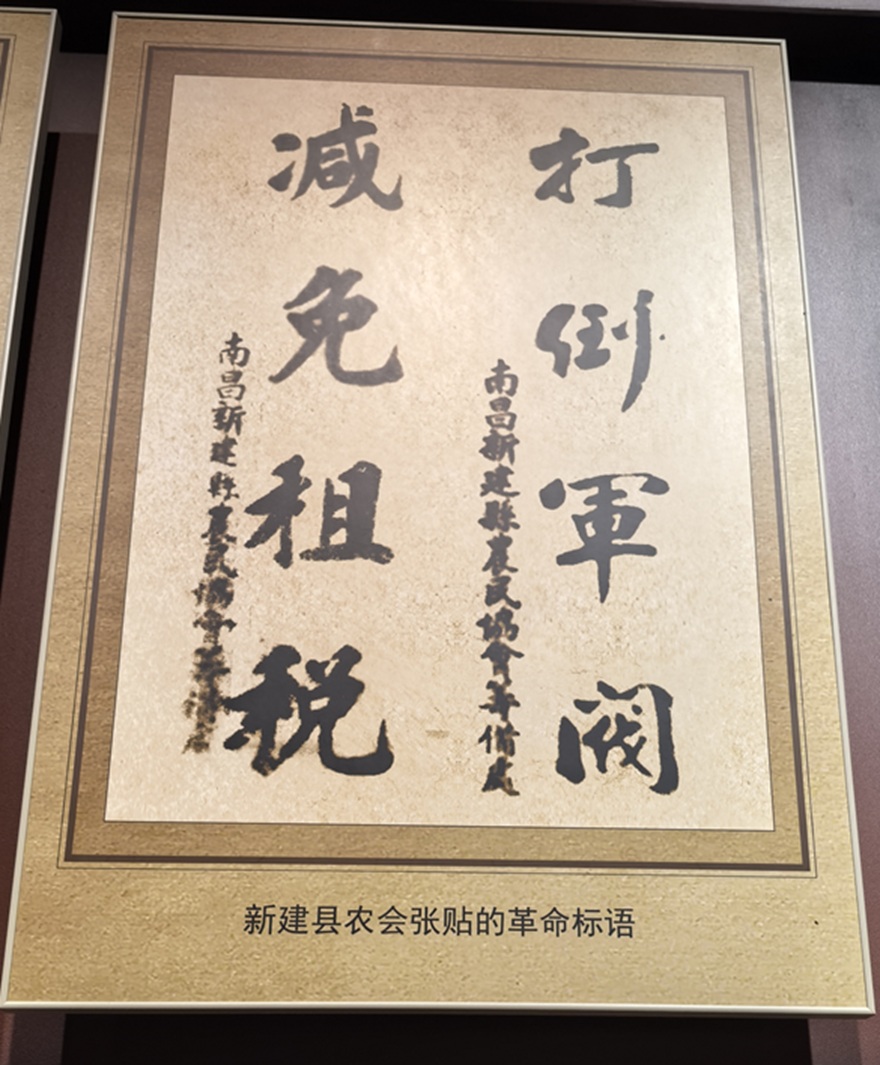 打倒軍阀
南昌新建縣農民協會筹備处
减免租税
南昌新建縣農民協會
新建县农会张贴的革命标语